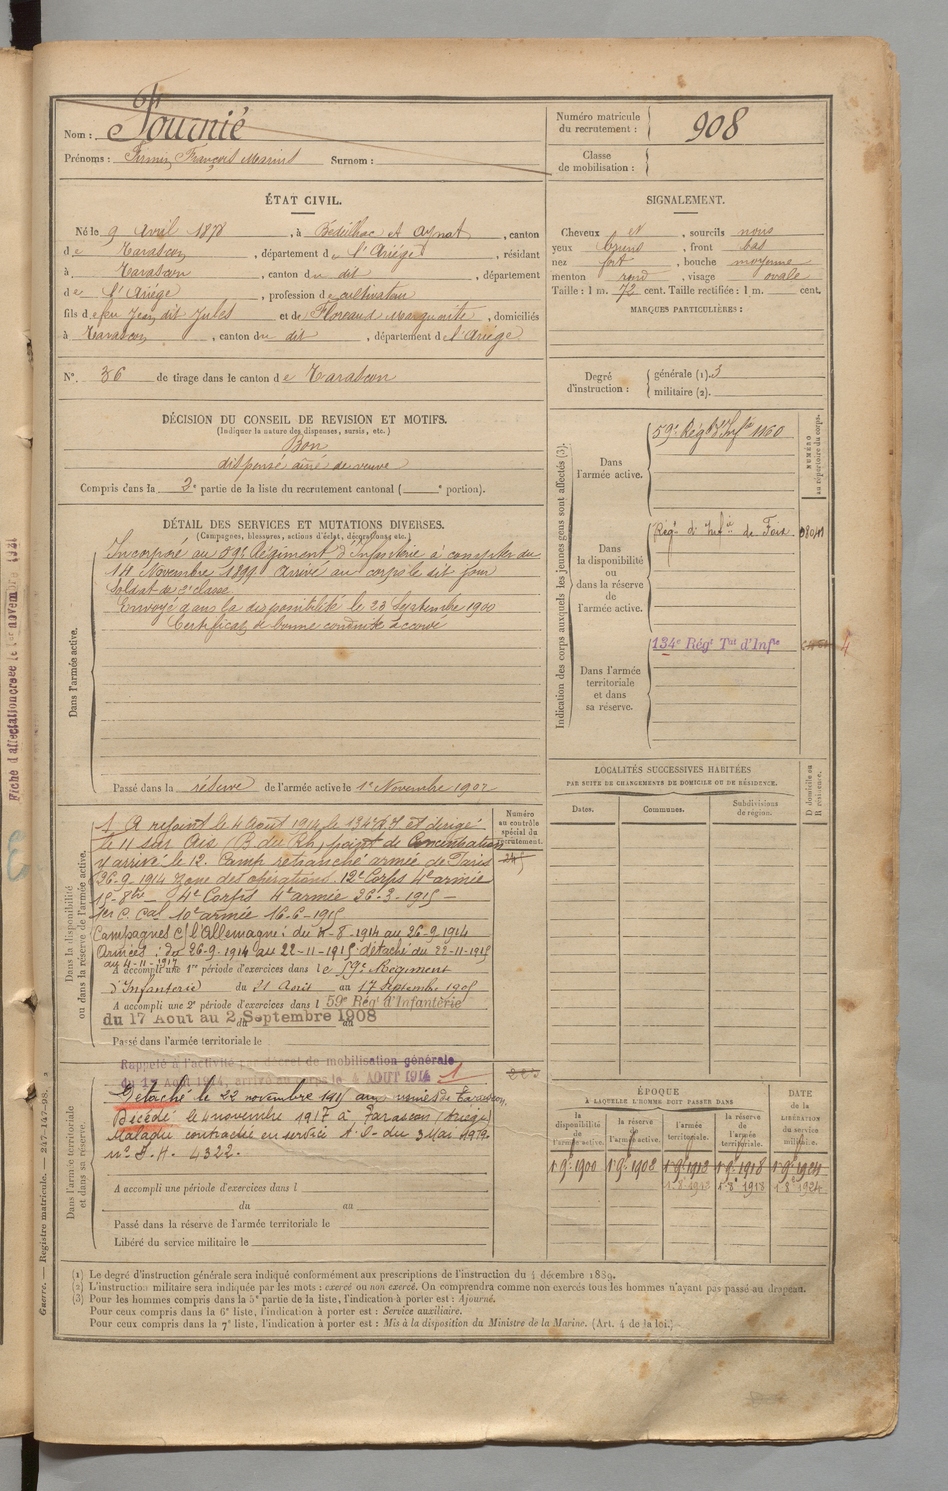 Fiche d'affectation créée le 1er novembre 1921
Guerre. — Registre matricule. — 247-147-98.
Nom : Fournié
Prénoms : Firmin François Marius Surnom :
Numéro matricule
du recrutement : 908
Classe
de mobilisation :
ÉTAT CIVIL.
Né le 9 Avril 1878, à Bedeilhac et Aynat, canton
de Tarascon, département de l'Ariège, résidant
à Tarascon, canton du dit, département
de l'Ariège, profession de cultivateur
fils de feu Jean dit Jules et de Floreaud Marguerite, domiciliés
à Tarascon, canton du dit, département de l'Ariège
N° 36 de tirage dans le canton de Tarascon
SIGNALEMENT.
Cheveux N, sourcils noirs
yeux bruns, front bas
nez fort, bouche moyenne
menton rond, visage ovale
Taille : 1 m. 72 cent. Taille rectifiée : 1 m. cent.
MARQUES PARTICULIÈRES :
Degré
d'instruction :
générale (1). 3
militaire (2).
DÉCISION DU CONSEIL DE REVISION ET MOTIFS.
(Indiquer la nature des dispenses, sursis, etc.)
Bon
dispensé aîné de veuve
Compris dans la 2e partie de la liste du recrutement cantonal ( e portion).
DÉTAIL DES SERVICES ET MUTATIONS DIVERSES.
(Campagnes, blessures, actions d'éclat, décorations, etc.)
Dans l'armée active.
Incorporé au 59e Régiment d'Infanterie à compter du
14 Novembre 1899 arrivé au corps le dit jour
Soldat de 2e classe
Envoyé dans la disponibilité le 23 Septembre 1900
Certificat de bonne conduite accordé
Passé dans la réserve de l'armée active le 1er Novembre 1902
Indication des corps auxquels les jeunes gens sont affectés (3).
NUMÉRO
au répertoire du corps.
Dans
l'armée active.
59e Régt d'Infie 1160
Dans
la disponibilité
ou
dans la réserve
de
l'armée active.
Régt d'Infie de Foix
Dans l'armée
territoriale
et dans
sa réserve.
134e Régt Tal d'Infie
4
LOCALITÉS SUCCESSIVES HABITÉES
PAR SUITE DE CHANGEMENTS DE DOMICILE OU DE RÉSIDENCE.
Dates.
Communes.
Subdivisions
de région.
D. domicile ou
R. résidence.
Dans la disponibilité
ou dans la réserve de l'armée active.
Numéro
au contrôle
spécial du
recrutement.
1 A rejoint le 4 Août 1914 le 134e R.I et dirigé
le 11 sur Aix (B. du Rh.) point de concentration
y arrivé le 12. Camp retranché armée de Paris
26-9-1914 Zone des opérations. 12e Corps 4e armée
15-8bre — 4e Corps 4e armée 26-3-1915 —
1er C. Cal 10e armée 16-6-1915
Campagnes c/ l'Allemagne : du 4-8-1914 au 26-9-1914
Armées : du 26-9-1914 au 22-11-1915 détaché du 22-11-1915
au 4-11-1917
A accompli une 1re période d'exercices dans le 59e Régiment
d'Infanterie du 21 Août au 17 Septembre 1905
A accompli une 2e période d'exercices dans l 59e Régt d'Infanterie
du 17 Août au 2 Septembre 1908
Passé dans l'armée territoriale le
Rappelé à l'activité par décret de mobilisation générale
du 1er Août 1914, arrivé au corps le 4 AOUT 1914 1
Dans l'armée territoriale
et dans sa réserve.
Détaché le 22 novembre 1915 aux usines de Tarascon.
Décédé le 4 novembre 1917 à Tarascon (Ariège)
Maladie contractée en service A.S. du 3 Mai 1919.
n° S.H. 4322.
A accompli une période d'exercices dans l
du au
Passé dans la réserve de l'armée territoriale le
Libéré du service militaire le
ÉPOQUE
À LAQUELLE L'HOMME DOIT PASSER DANS
la
disponibilité
de
l'armée active.
la réserve
de
l'armée active.
l'armée
territoriale.
la réserve
de
l'armée
territoriale.
DATE
de la
LIBÉRATION
du service
militaire.
1 9e 1900 1 9e 1902 1 9e 1912 1 9e 1918 1 9e 1924
1 8e 1912 1 8e 1918 1 8e 1924
(1) Le degré d'instruction générale sera indiqué conformément aux prescriptions de l'instruction du 4 décembre 1889.
(2) L'instruction militaire sera indiquée par les mots : exercé ou non exercé. On comprendra comme non exercés tous les hommes n'ayant pas passé au drapeau.
(3) Pour les hommes compris dans la 5e partie de la liste, l'indication à porter est : Ajourné.
Pour ceux compris dans la 6e liste, l'indication à porter est : Service auxiliaire.
Pour ceux compris dans la 7e liste, l'indication à porter est : Mis à la disposition du Ministre de la Marine. (Art. 4 de la loi.)